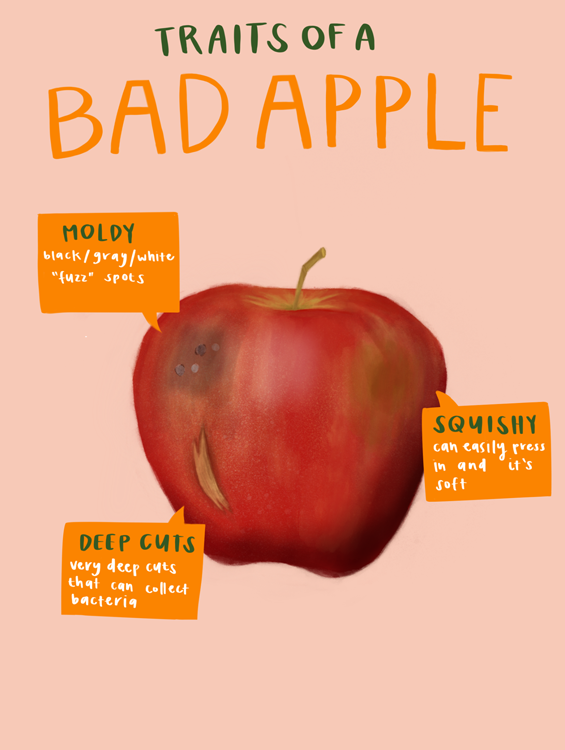 TRAITS OF A
BAD APPLE
MOLDY
black/gray/white
"fuzz" spots
SQUISHY
can easily press
in and it's
soft
DEEP CUTS
very deep cuts
that can collect
bacteria